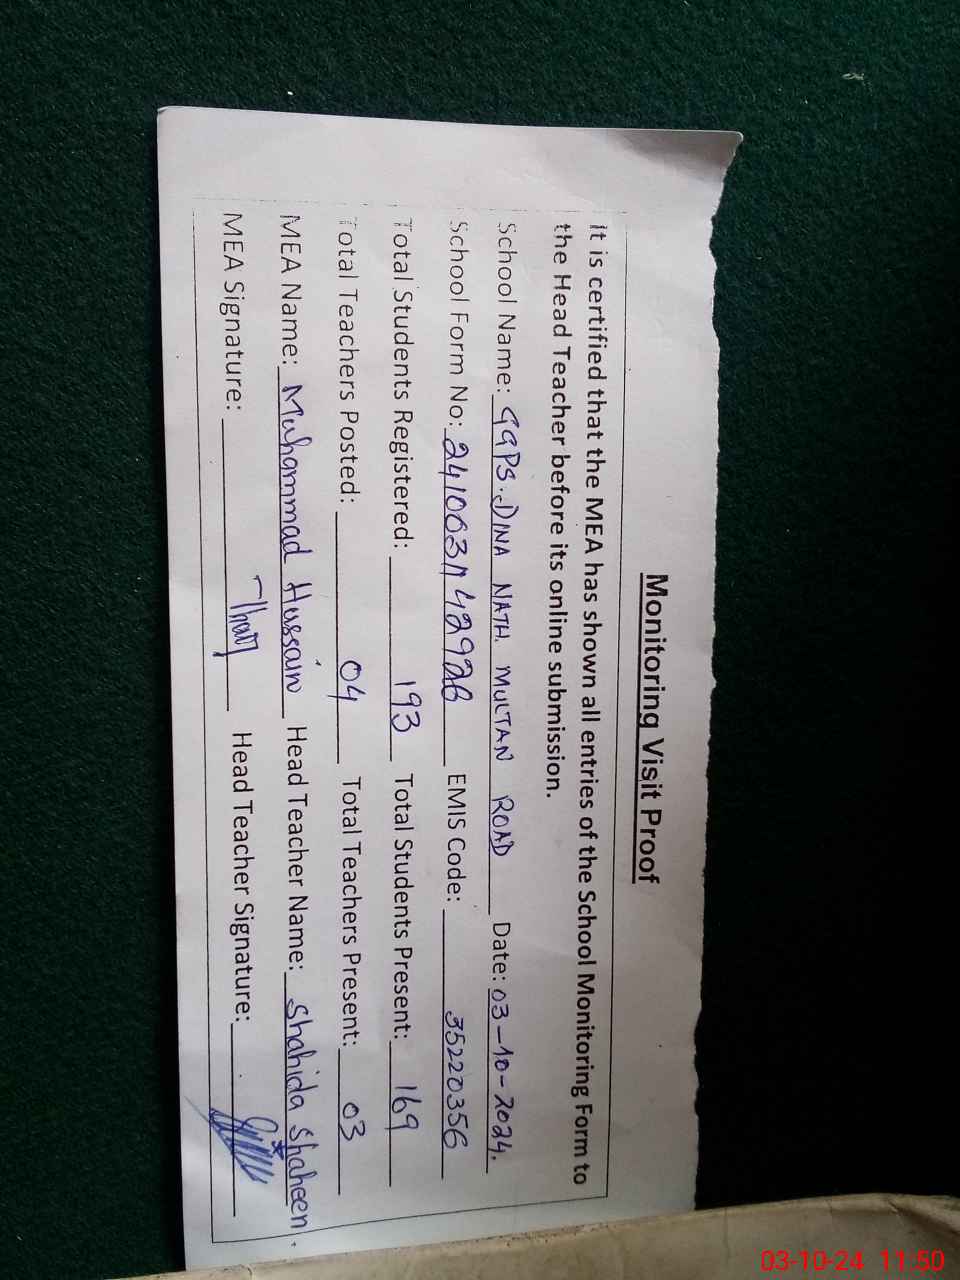 Monitoring Visit Proof
It is certified that the MEA has shown all entries of the School Monitoring Form to
the Head Teacher before its online submission.
School Name: GGPS. DINA NATH. MULTAN ROAD Date: 03-10-2024.
School Form No: EMIS Code: 35220356
Total Students Registered: 193 Total Students Present: 169
Total Teachers Posted: 04 Total Teachers Present: 03
MEA Name: Muhammad Hussain Head Teacher Name: Shahida Shaheen
MEA Signature: Head Teacher Signature:
03-10-24 11:50